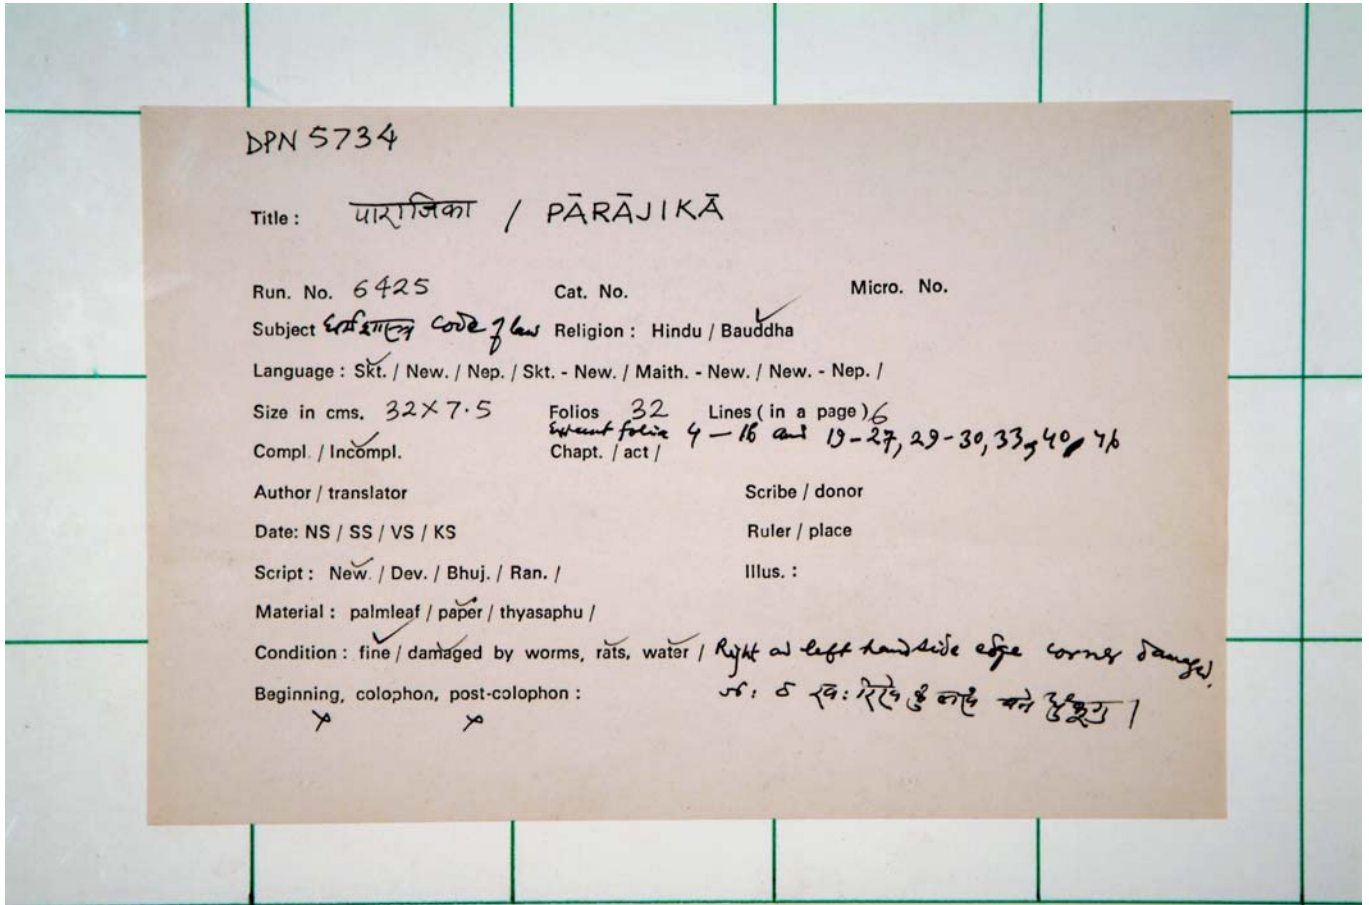 DPN 5734
Title : पाराजिका / PĀRĀJIKĀ
Run. No. 6425 Cat. No. Micro. No.
Subject धर्मशास्त्र code of law Religion : Hindu / Bauddha
Language : Skt. / New. / Nep. / Skt. - New. / Maith. - New. / New. - Nep. /
Size in cms. 32 X 7.5 Folios 32 Lines ( in a page ) 6
Extant folia 4 — 16 and 19-27, 29-30, 33, 40, 46
Compl. / Incompl. Chapt. / act /
Author / translator Scribe / donor
Date: NS / SS / VS / KS Ruler / place
Script : New. / Dev. / Bhuj. / Ran. / Illus. :
Material : palmleaf / paper / thyasaphu /
Condition : fine / damaged by worms, rats, water / Right and left hand side edge corner damaged.
Beginning, colophon, post-colophon :